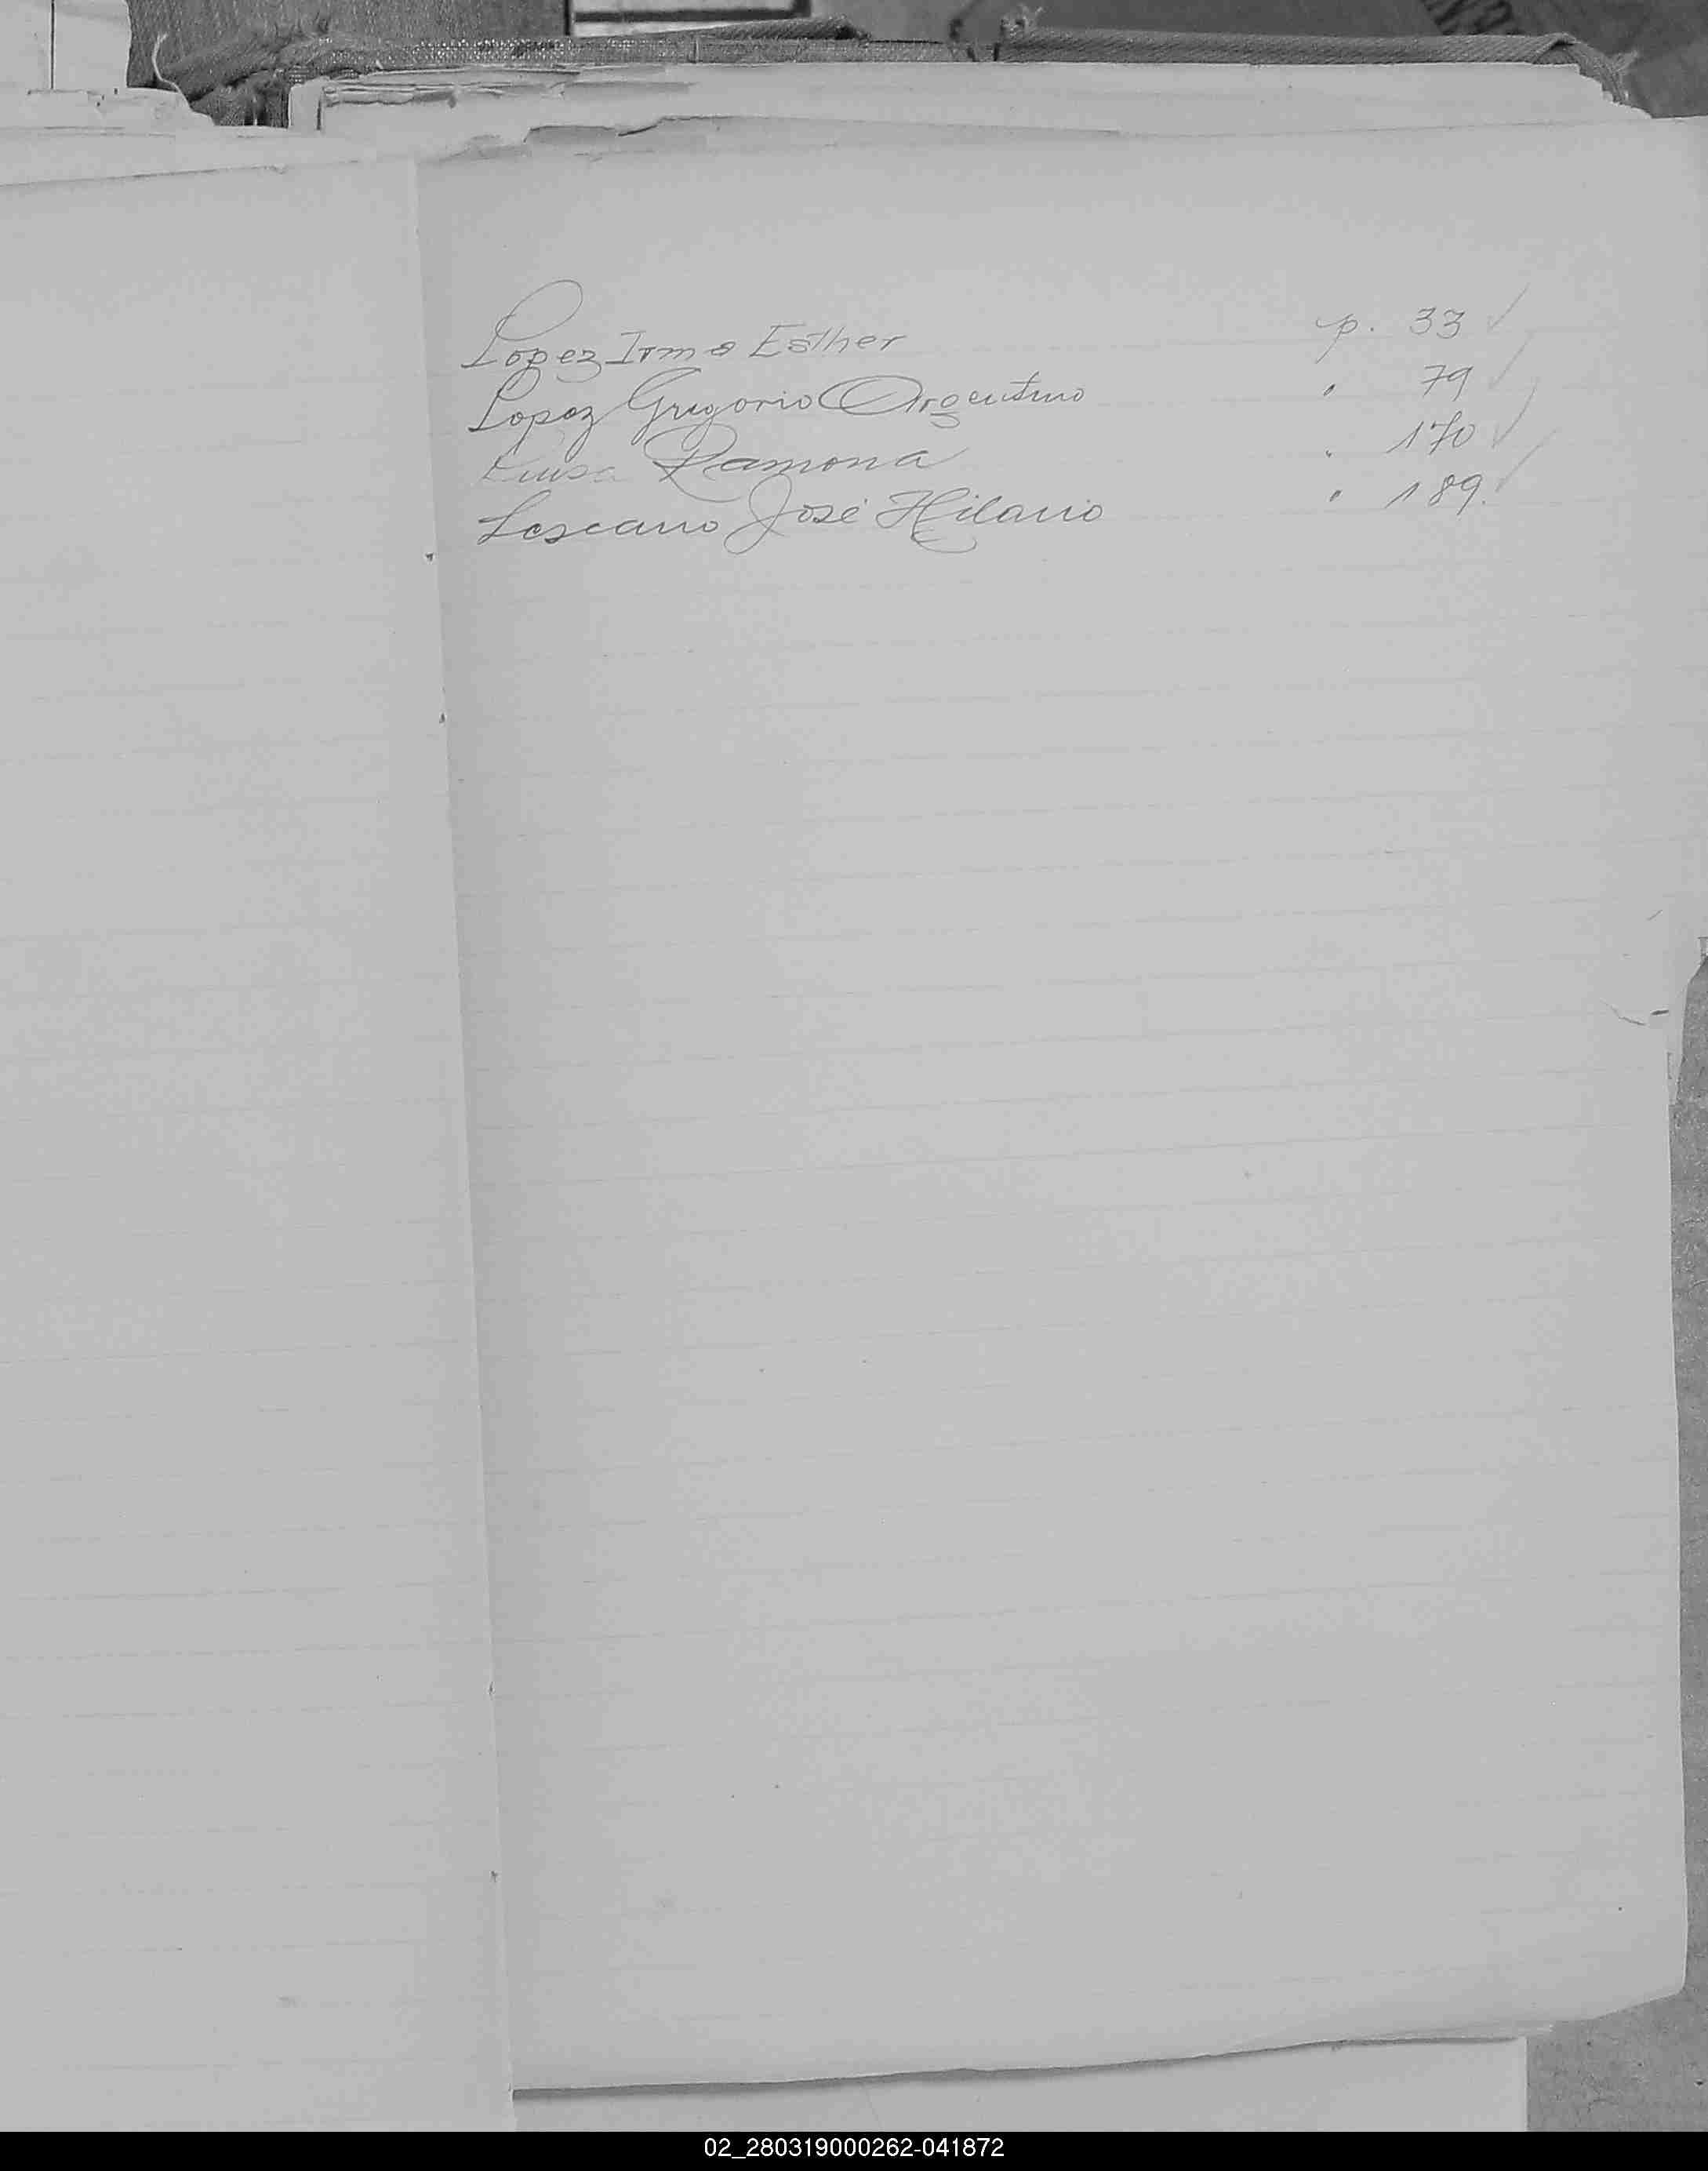 Lopez Irma Esther p. 33 ✓
Lopez Gregorio Argentino " 79 ✓
Luisa Ramona " 170 ✓
Lescano José Hilario " 189. ✓
02_280319000262-041872